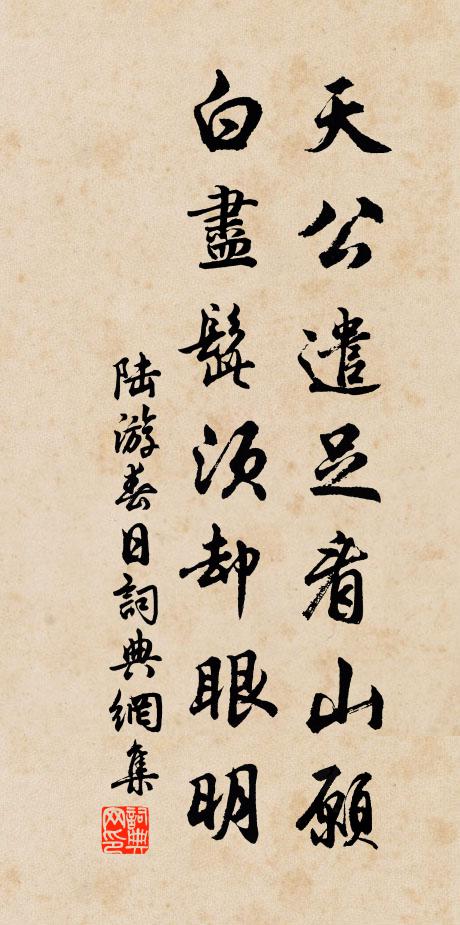 天公遣足看山願
白盡髭須却眼明
陸游春日詞典網集
詞典网印